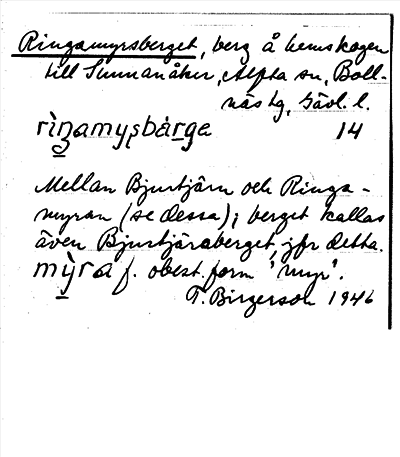 Ringamyrsberget, berg å hemskogen
till Sunnanåker, Alfta sn, Boll-
näs tg, Gävl. l.
rìŋamyṣbàrgə 14
Mellan Bjurtjärn och Ringa-
myran (se dessa); berget kallas
även Bjurtjärnberget, jfr detta.
mỳra f. obest. form 'myr'.
T. Birgerson 1946